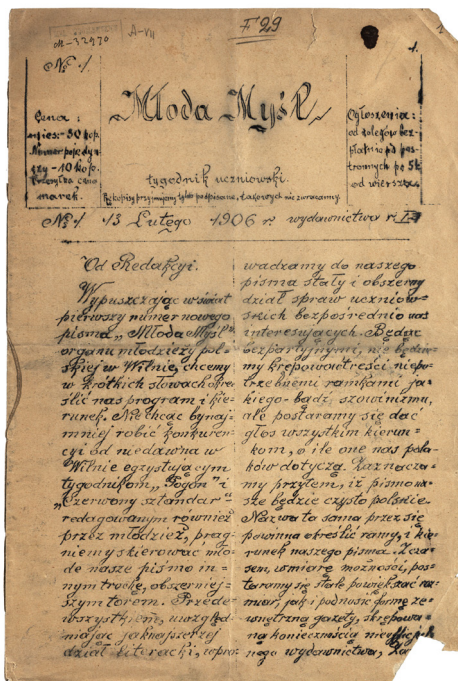 M-32970
A-VII
F 29
1.
№ 1.
Młoda Myśl
Cena:
mies:- 30 kop.
Numer pojedyn-
czy - 10 kop.
marek.
tygodnik uczniowski.
Rękopisy przyjmujemy tylko podpisane, takowych nie zwracamy.
Ogłoszenia:
od kolegów bez-
płatnie
od wiersza.
№ 1. 13 Lutego 1906 r. wydawnictwa r. I.
Od Redakcyi.
Wypuszczając w świat
pierwszy numer nowego
pisma, „Młoda Myśl",
organu młodzieży pol-
skiej w Wilnie, chcemy
w krótkich słowach okre-
ślić nasz program i kie-
runek. Nie chcąc bynaj-
mniej robić konkuren-
cyi od niedawna w
Wilnie egzystującym
tygodnikom, „Pogoń" i
„Czerwony sztandar"
redagowanym również
przez młodzież, prag-
niemy skierować mło-
de nasze pismo in-
nym trochę, obszerniej-
szym torem. Przede-
wszystkiem, uwzględ-
niając jaknajszerzej
dział literacki, wpro-
wadzamy do naszego
pisma stały i obszerny
dział spraw uczniow-
skich bezpośrednio nas
interesujących. Będąc
bezpartyjnymi, nie będzie-
my krępować treści niepo-
trzebnemi ramkami ja-
kiego-bądź szowinizmu,
ale postaramy się dać
głos wszystkim kierun-
kom, o ile one nas pola-
ków dotyczą. Zaznacza-
my przytem, iż pismo na-
sze będzie czysto polskie.
Nazwa ta sama przez się
powinna określić ramy, i kie-
runek naszego pisma. Z cza-
sem, w miarę możności, pos-
taramy się stale powiększać roz-
miar, jak i podnosić formę ze-
wnętrzną gazety, skrępowa-
ną koniecznością
nego wydawnictwa,